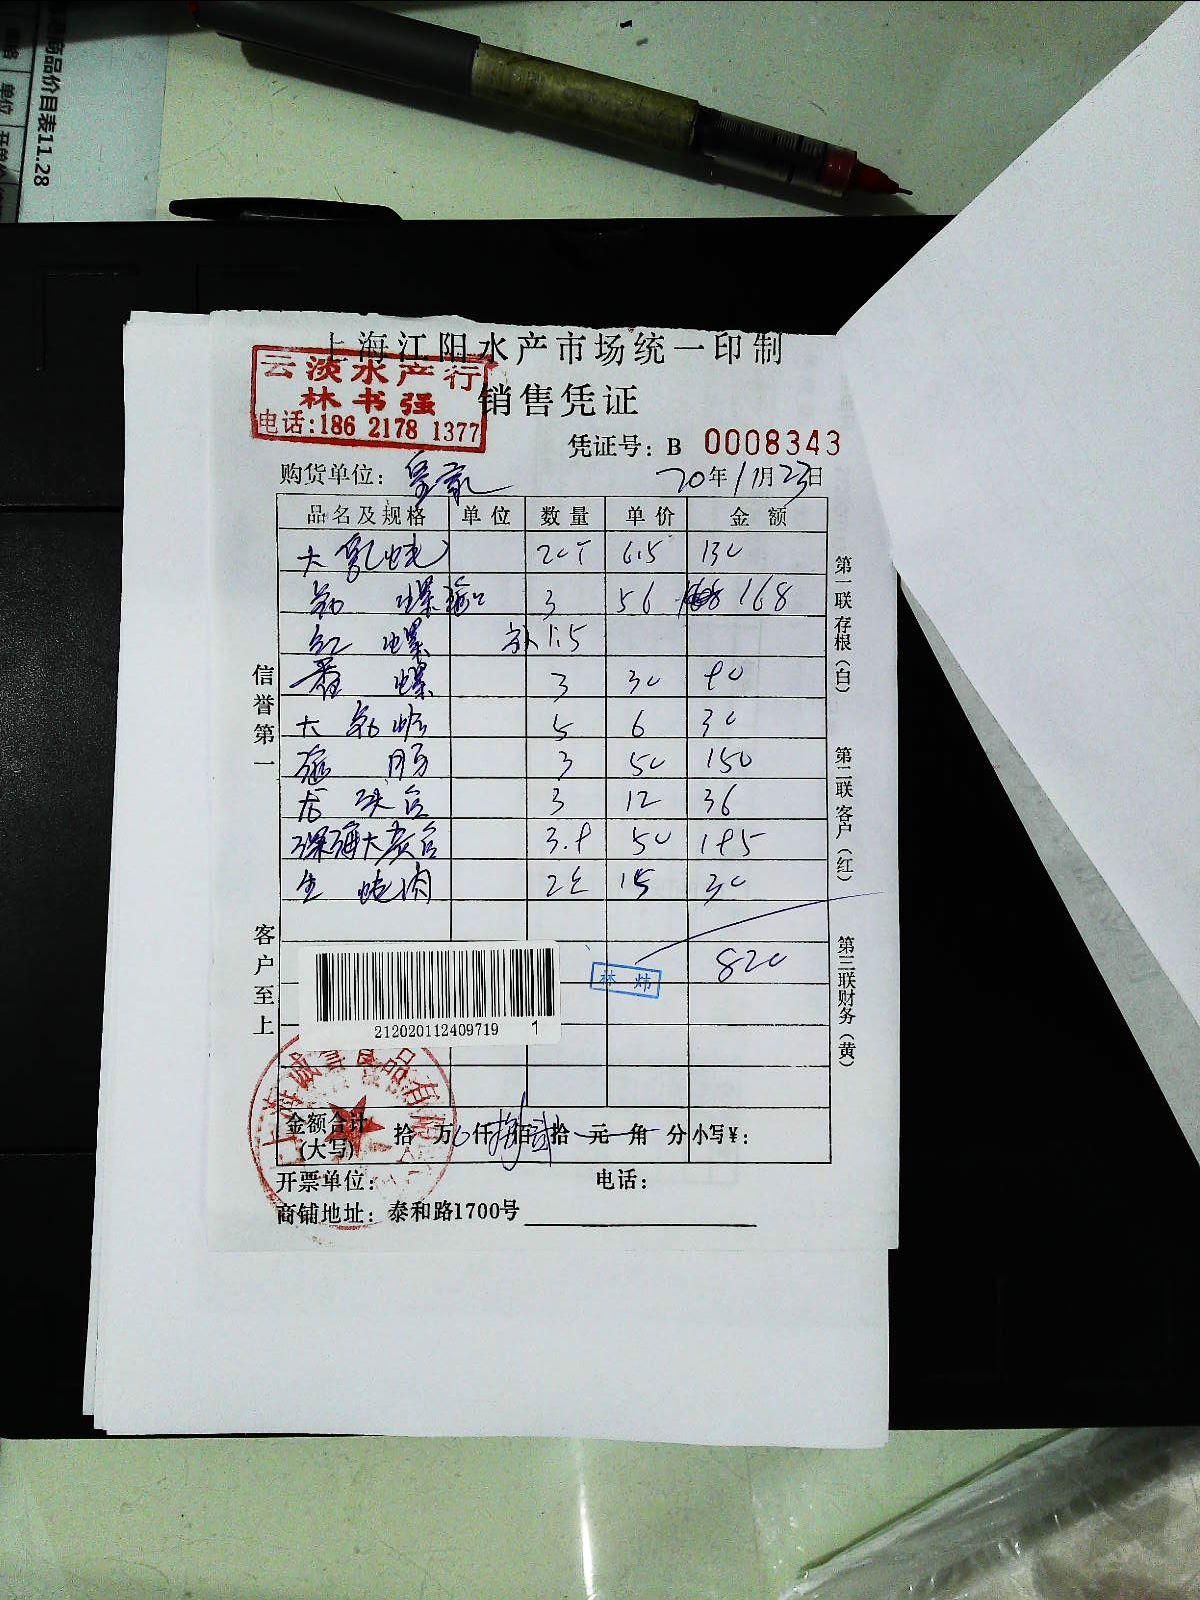 商品价目表11.28
单位
上海江阳水产市场统一印制
云淡水产行
林书强
电话:186 2178 1377
销售凭证
凭证号: B 0008343
购货单位: 20年11月23日
品名及规格 单位 数量 单价 金额
大 20个 6.5 130
螺 3 56 168
红螺 补1.5
螺 3 30 90
大 5 6 30
肠 3 50 150
3 12 36
深海大 3.9 50 195
生蚝肉 2 15 30
820
林炜
212020112409719 1
金额合计(大写) 拾 万 0 仟 捌 佰 贰 拾 元 角 分 小写¥:
开票单位: 电话:
商铺地址: 泰和路1700号
信誉第一
客户至上
第一联存根(白)
第二联客户(红)
第三联财务(黄)